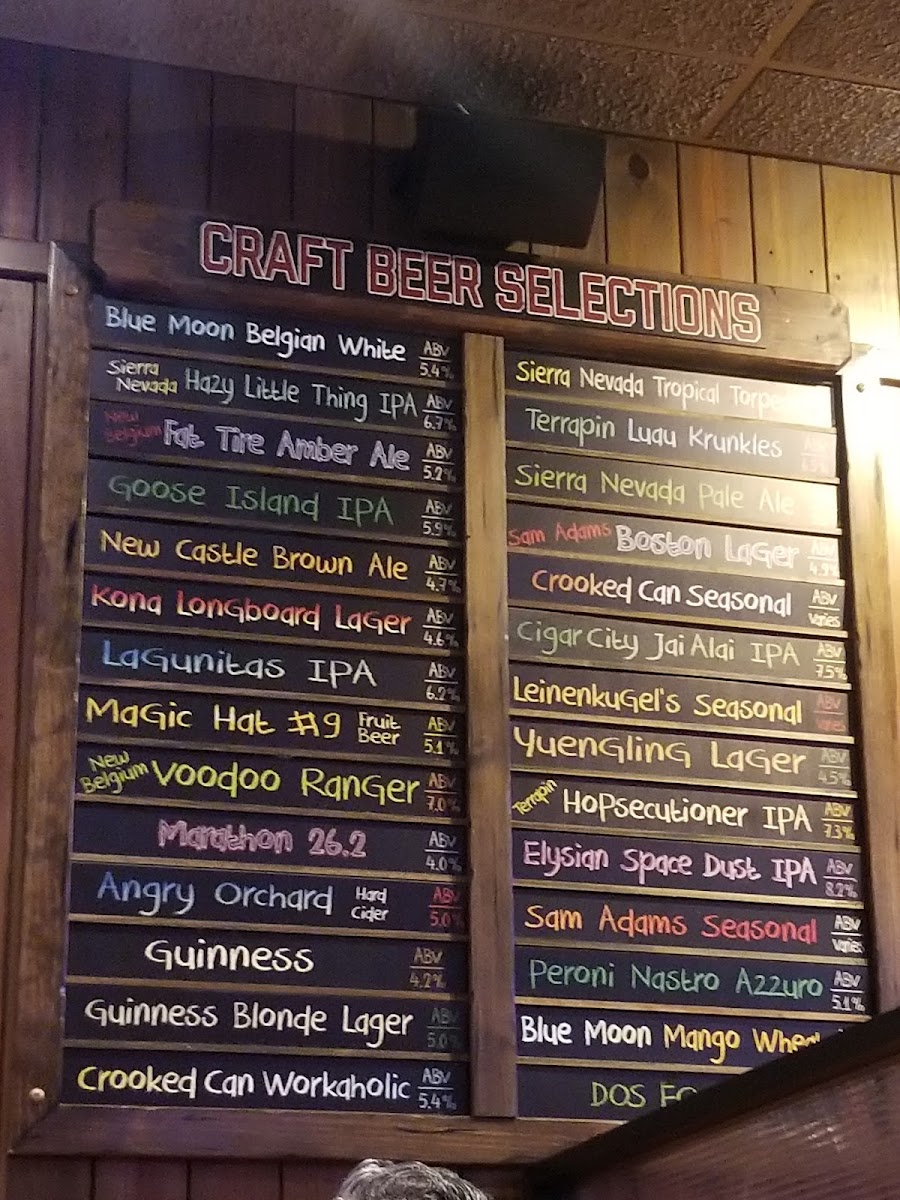 CRAFT BEER SELECTIONS
Blue Moon Belgian White ABV 5.4%
Sierra Nevada Hazy Little Thing IPA ABV 6.7%
New Belgium Fat Tire Amber Ale ABV 5.2%
Goose Island IPA ABV 5.9%
New Castle Brown Ale ABV 4.7%
Kona Longboard Lager ABV 4.6%
Lagunitas IPA ABV 6.2%
Magic Hat #9 Fruit Beer ABV 5.1%
New Belgium Voodoo Ranger ABV 7.0%
Marathon 26.2 ABV 4.0%
Angry Orchard Hard Cider ABV 5.0%
Guinness ABV 4.2%
Guinness Blonde Lager ABV 5.0%
Crooked Can Workaholic ABV 5.4%
Sierra Nevada Tropical
Terrapin Luau Krunkles ABV
Sierra Nevada Pale Ale
Sam Adams Boston Lager ABV 4.9%
Crooked Can Seasonal ABV varies
Cigar City Jai Alai IPA ABV 7.5%
Leinenkugel's Seasonal ABV varies
Yuengling Lager ABV 4.5%
Terrapin Hopsecutioner IPA ABV 7.3%
Elysian Space Dust IPA ABV 8.2%
Sam Adams Seasonal ABV varies
Peroni Nastro Azzuro ABV 5.1%
Blue Moon Mango
DOS